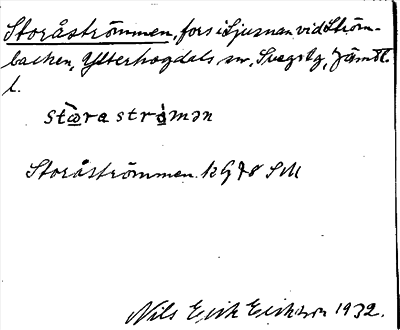 Storåströmmen, fors i Ljusnan vid Ström-
backen, Ytterhogdals sn, Svegs tg, Jämtl.
l.
stæ̀ra strømən
Storåströmmen. k G 78 SM
Nils Erik Eriksson 1932.